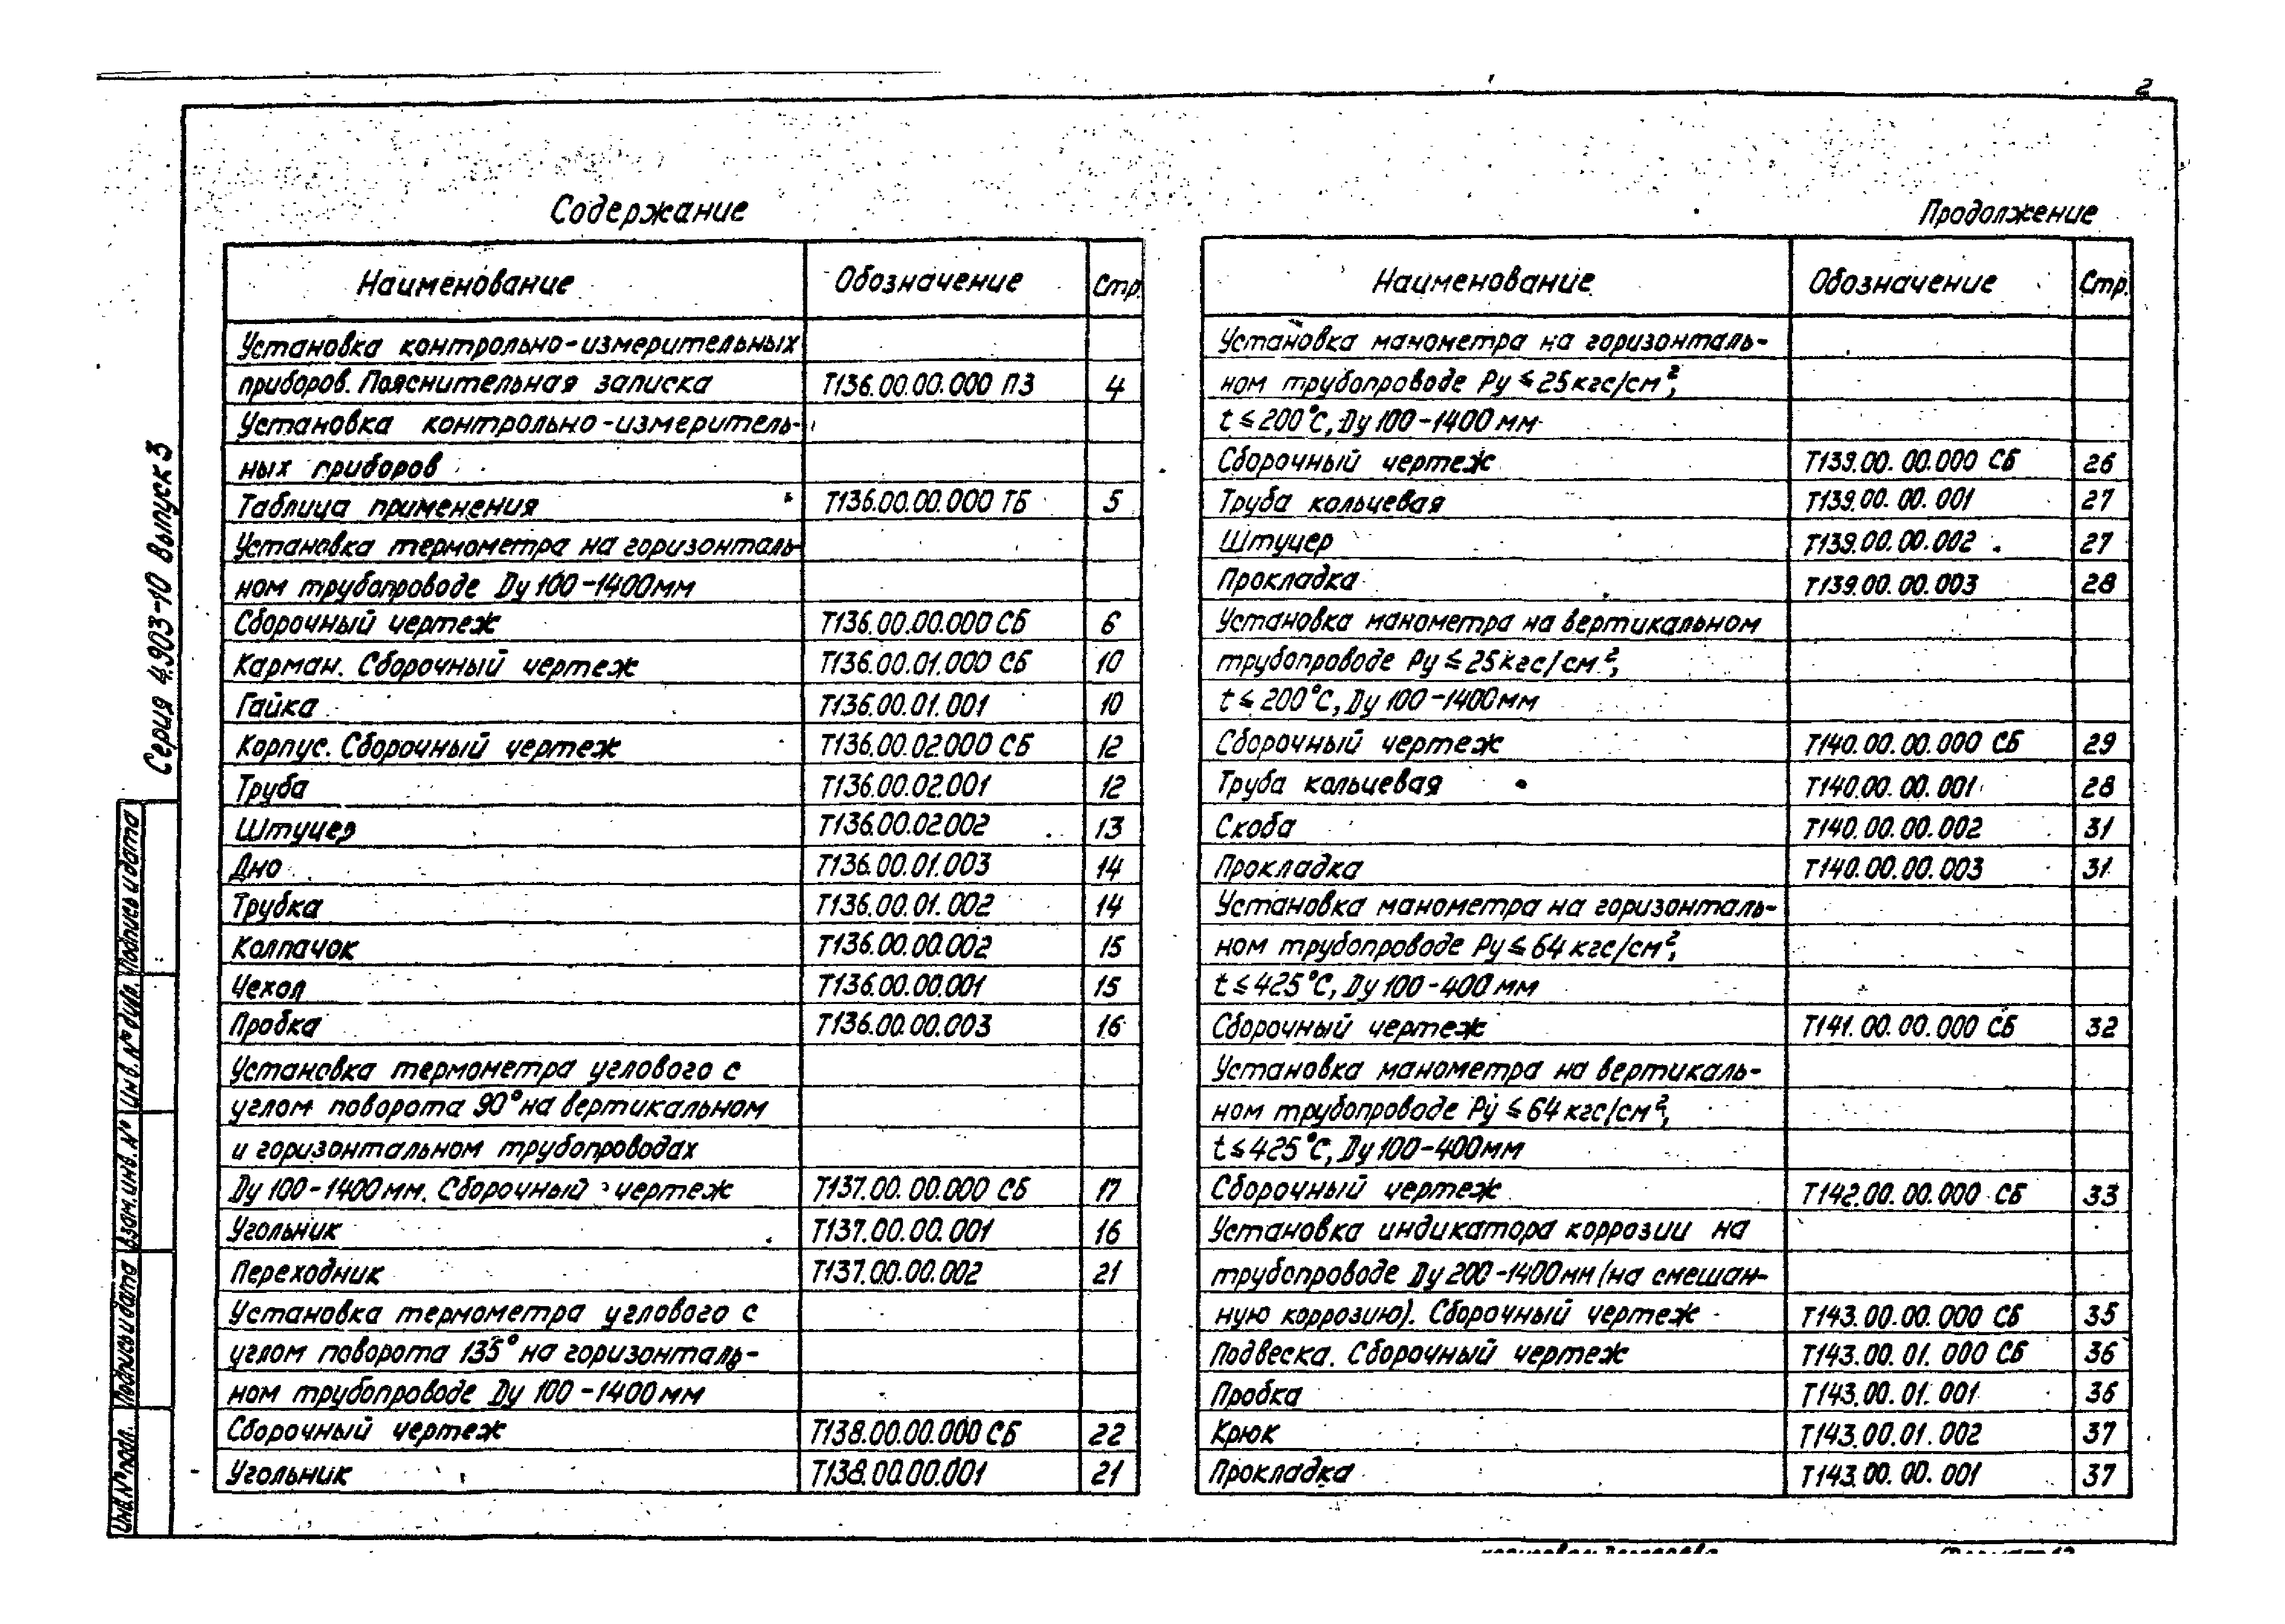 2
Содержание
Наименование Обозначение Стр.
Установка контрольно-измерительных
приборов. Пояснительная записка Т136.00.00.000 ПЗ 4
Установка контрольно-измеритель-
ных приборов
Таблица применения Т136.00.00.000 ТБ 5
Установка термометра на горизонталь-
ном трубопроводе Ду 100-1400мм
Сборочный чертеж Т136.00.00.000 СБ 6
Карман. Сборочный чертеж Т136.00.01.000 СБ 10
Гайка Т136.00.01.001 10
Корпус. Сборочный чертеж Т136.00.02000 СБ 12
Труба Т136.00.02.001 12
Штуцер Т136.00.02002 13
Дно Т136.00.01.003 14
Трубка Т136.00.01.002 14
Колпачок Т136.00.00.002 15
Чехол Т136.00.00.001 15
Пробка Т136.00.00.003 16
Установка термометра углового с
углом поворота 90° на вертикальном
и горизонтальном трубопроводах
Ду 100-1400мм. Сборочный чертеж Т137.00.00.000 СБ 17
Угольник Т137.00.00.001 16
Переходник Т137.00.00.002 21
Установка термометра углового с
углом поворота 135° на горизонталь-
ном трубопроводе Ду 100-1400мм
Сборочный чертеж Т138.00.00.000 СБ 22
Угольник Т138.00.00.001 21
Продолжение
Наименование Обозначение Стр.
Установка манометра на горизонталь-
ном трубопроводе Ру ≤ 25кгс/см²,
t ≤ 200°С, Ду 100-1400мм
Сборочный чертеж Т139.00.00.000 СБ 26
Труба кольцевая Т139.00.00.001 27
Штуцер Т139.00.00.002 27
Прокладка Т139.00.00.003 28
Установка манометра на вертикальном
трубопроводе Ру ≤ 25кгс/см²,
t ≤ 200°С, Ду 100-1400мм
Сборочный чертеж Т140.00.00.000 СБ 29
Труба кольцевая Т140.00.00.001 28
Скоба Т140.00.00.002 31
Прокладка Т140.00.00.003 31
Установка манометра на горизонталь-
ном трубопроводе Ру ≤ 64 кгс/см²,
t ≤ 425°С, Ду 100-400мм
Сборочный чертеж Т141.00.00.000 СБ 32
Установка манометра на вертикаль-
ном трубопроводе Ру ≤ 64 кгс/см²,
t ≤ 425°С, Ду 100-400мм
Сборочный чертеж Т142.00.00.000 СБ 33
Установка индикатора коррозии на
трубопроводе Ду 200-1400мм (на смешан-
ную коррозию). Сборочный чертеж Т143.00.00.000 СБ 35
Подвеска. Сборочный чертеж Т143.00.01.000 СБ 36
Пробка Т143.00.01.001 36
Крюк Т143.00.01.002 37
Прокладка Т143.00.00.001 37
Серия 4.903-10 Выпуск 3
Подпись и дата
Инв.№ дубл.
Взам.инв.№
Подпись и дата
Инв.№ подл.